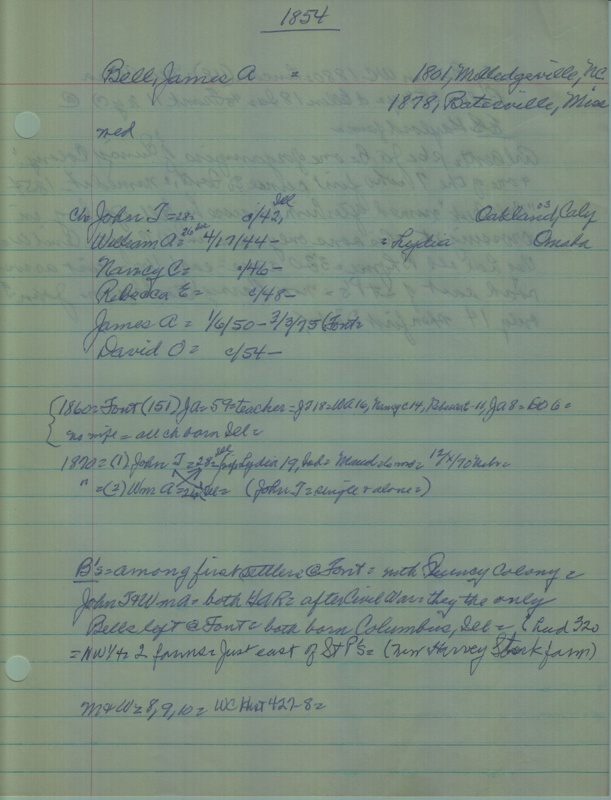 1854
Bell, James A = 1801, Milledgeville, NC
1878, Batesville, Miss
med
Ch= John T = 28= c/42, Ill Oakland, Caly 03
William A = 4/17/44 – = Lydia Omaha
Nancy C = c/46 –
Rebecca E = c/48 –
James A = 1/6/50 – 3/3/75 (Font=
David O = c/54 –
1860 = Font (151) JA = 59 = teacher = JT 18 = WA 16, Nancy C 14, 11, JA 8 = DO 6 =
no wife = all ch born Ill =
1870 = (1) John T = 28 = Ill Lydia 19, Ind = Maud = 12/70 Nebr =
" = (3) Wm A = Ill = (John T = single & alone =)
B's = among first settlers @ Font = with Quincy Colony =
John T & Wm A = both GAR = after Civil War = they the only
Bells left @ Font = both born Columbus, Ill = & had 320
= NW 1/4 = 2 farms = Just east of St P's = (new Harvey farm)
M & W = 8, 9, 10 = WC Hist 427-8 =